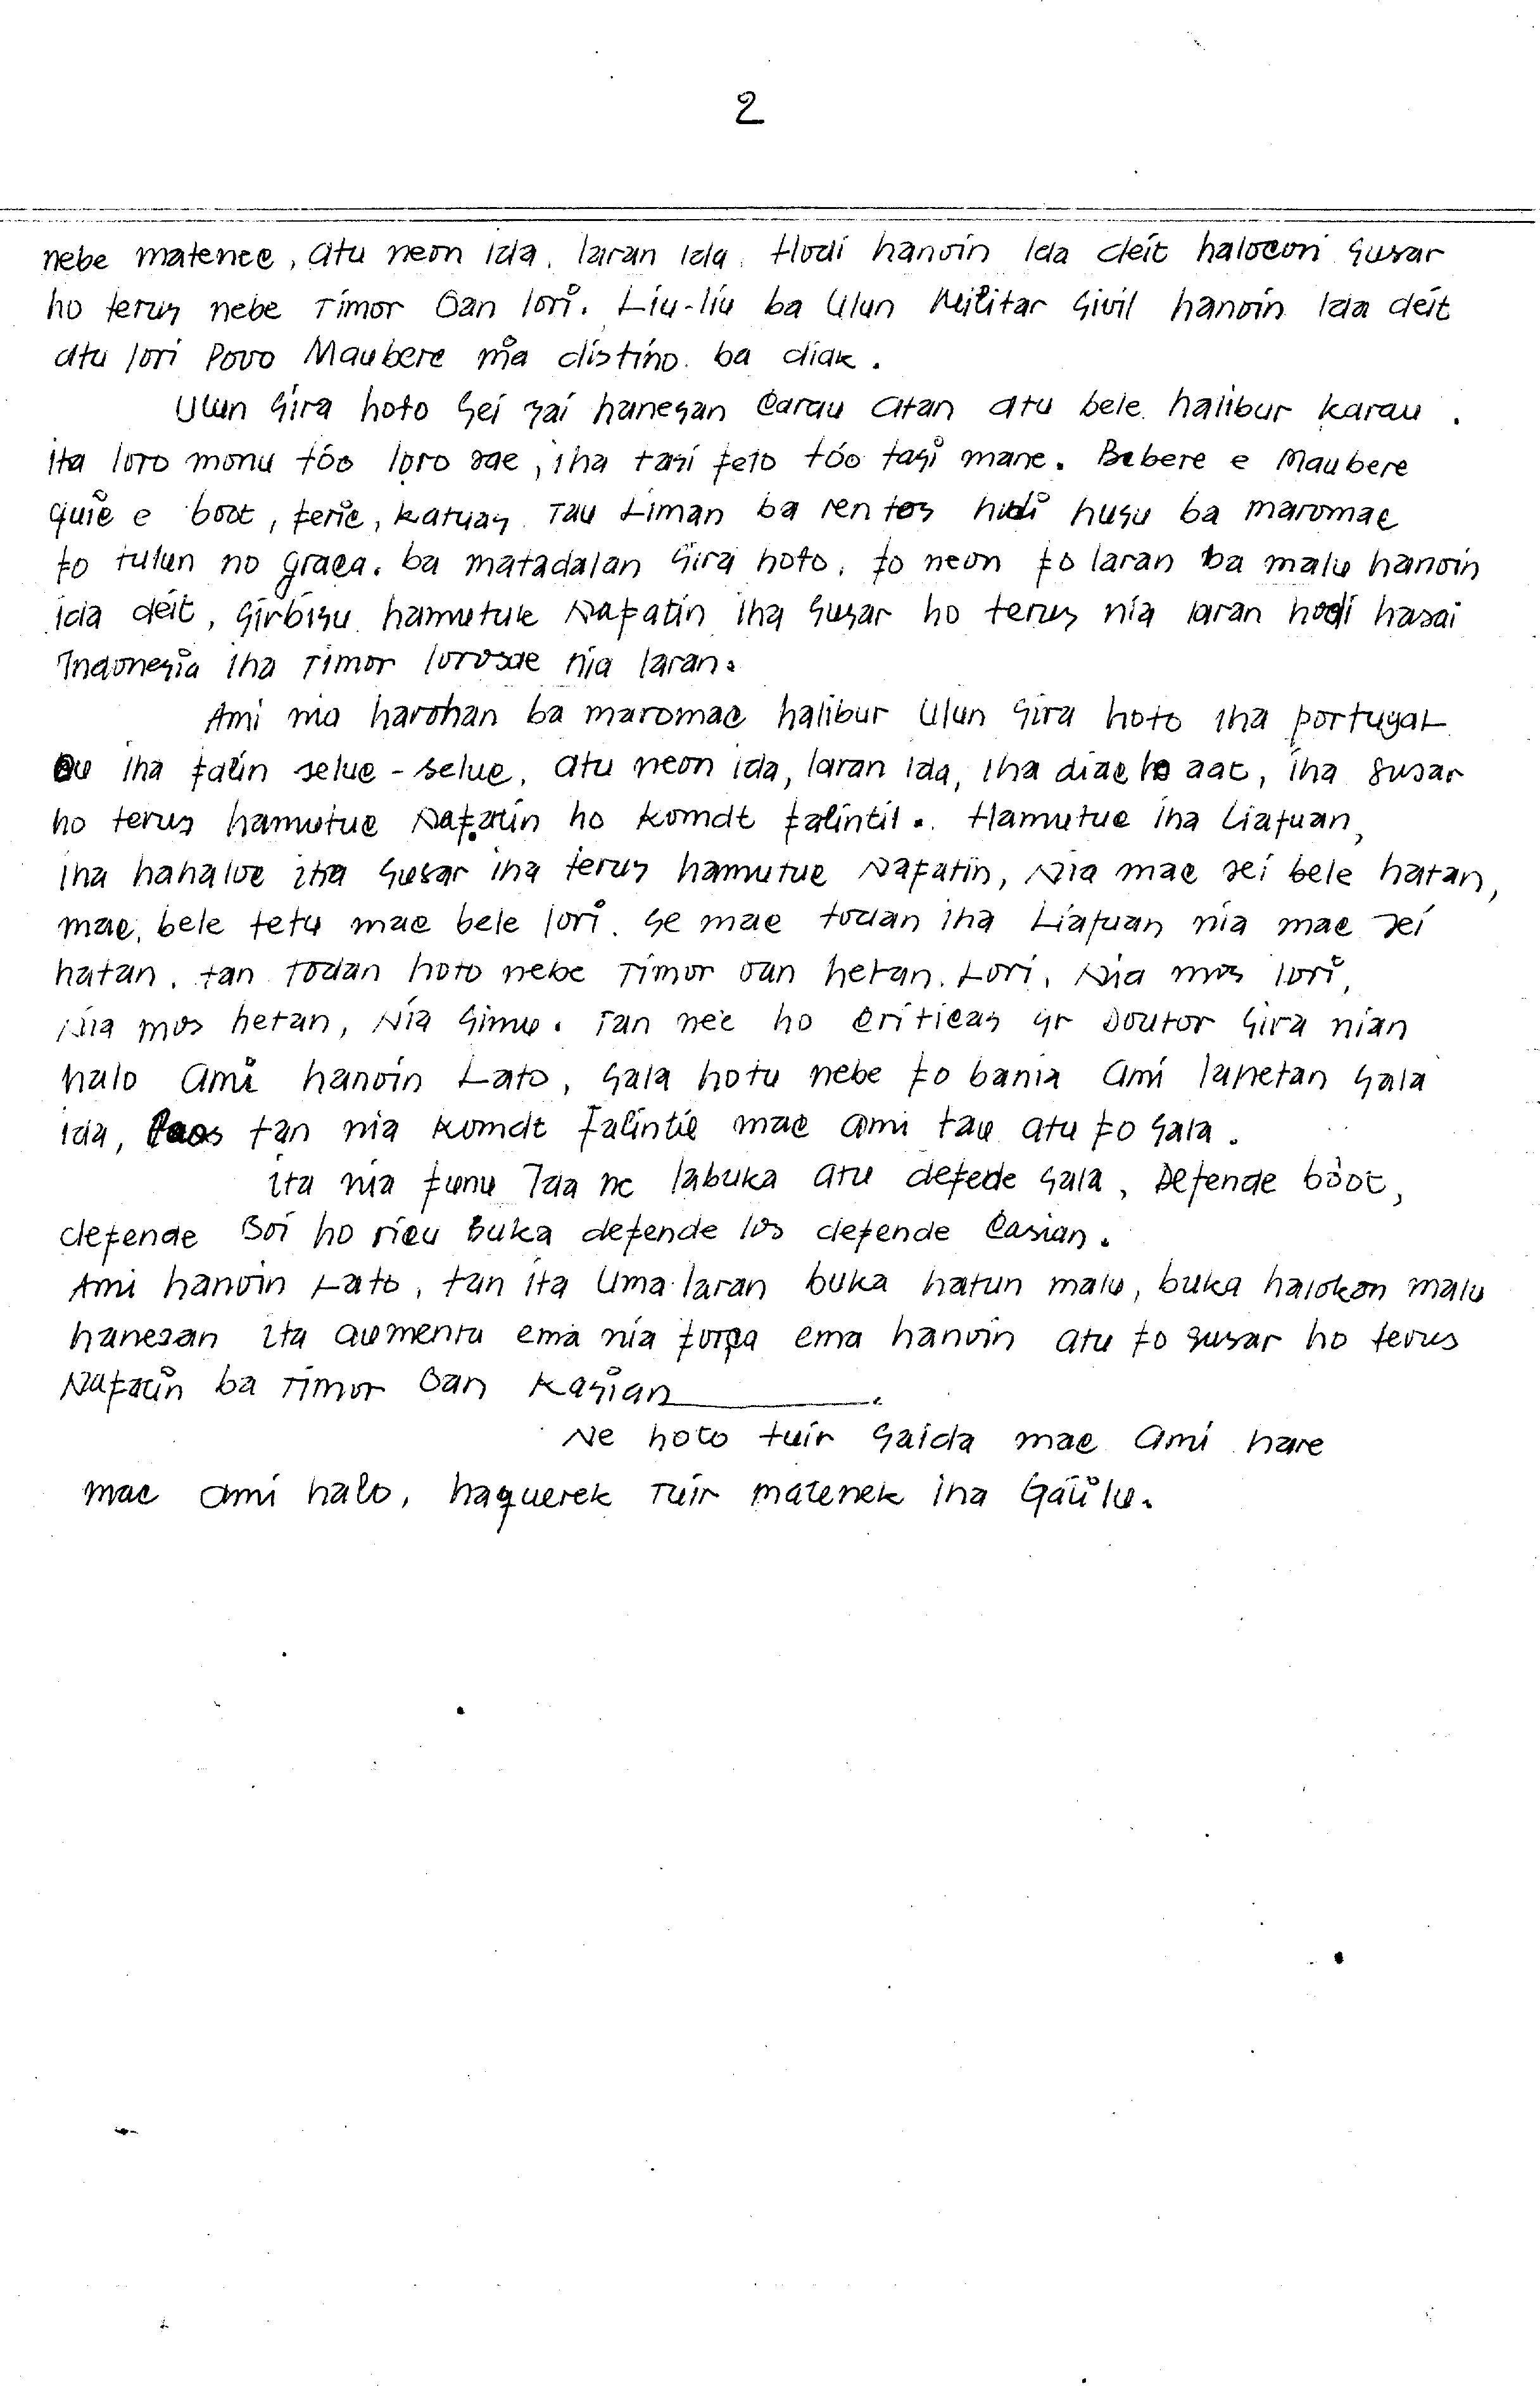 2
nebe matenec, atu neon ida, laran ida. Hodi hanoin Ida deit halocon susar
ho terus nebe Timor Oan lori. Liu-liu ba Ulun Militar Sivil hanoin Ida deit
atu lori Povo Maubere nia distino. ba diak.
Ulun Sira hoto sei sai hanesan Carau atan atu bele halibur karau.
ita loro monu tóo loro sae, iha tasi feto tóo tasi mane. Bebere e Maubere
quic e boot, feric, katuas. Tau Liman ba rentos hodi husu ba maromac
fo tulun no graca. ba matadalan Sira hoto, fo neon fo laran ba malu hanoin
ida deit, Sirbisu hamutuk Nafatin iha susar ho terus nia laran hodi hasai
Indonesia iha Timor lorosae nia laran.
Ami nia harohan ba maromac halibur Ulun Sira hoto iha portugal
ou iha failin seluc-seluc, atu neon ida, laran ida, iha diac ho aat, iha susar
ho terus hamutuc Nafatin ho komdt falintil. Hamutuc iha Liafuan,
iha hahaloc iha susar iha terus hamutuc Nafatin, Nia mac sei bele hatan,
mac bele tetu mac bele lori. Se mac todan iha Liafuan nia mac sei
hatan. tan Todan hoto nebe Timor oan hetan. Lori, Nia mos lori,
Nia mos hetan, Nia Simu. Tan nee ho criticas sr Doutor Sira nian
halo ami hanoin Lato, sala hotu nebe fo bania ami lahetan sala
ida, Laos tan nia komdt falintil mac ami tau atu fo sala.
ita nia funu Ida ne labuka atu defede sala, Defende bóot,
defende Boi ho ricu buka defende los defende Casian.
Ami hanoin Lato, tan ita Uma laran buka hatun malu, buka halokon malu
hanesan ita aumenta ema nia força ema hanoin atu fo susar ho terus
Nafatin ba Timor Oan Kasian.
Ne hoto tuir saida mac ami hare
mac ami halo, haquerek Tuir matenek iha